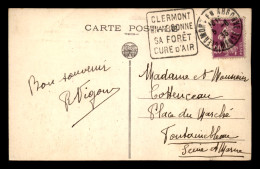 CARTE POSTALE
CLERMONT
SA FORÊT
CURE D'AIR
Bon souvenir
P. Vigon
Madame et Monsieur
Cottenceau
Place du Marché
Fontainebleau
Seine et Marne